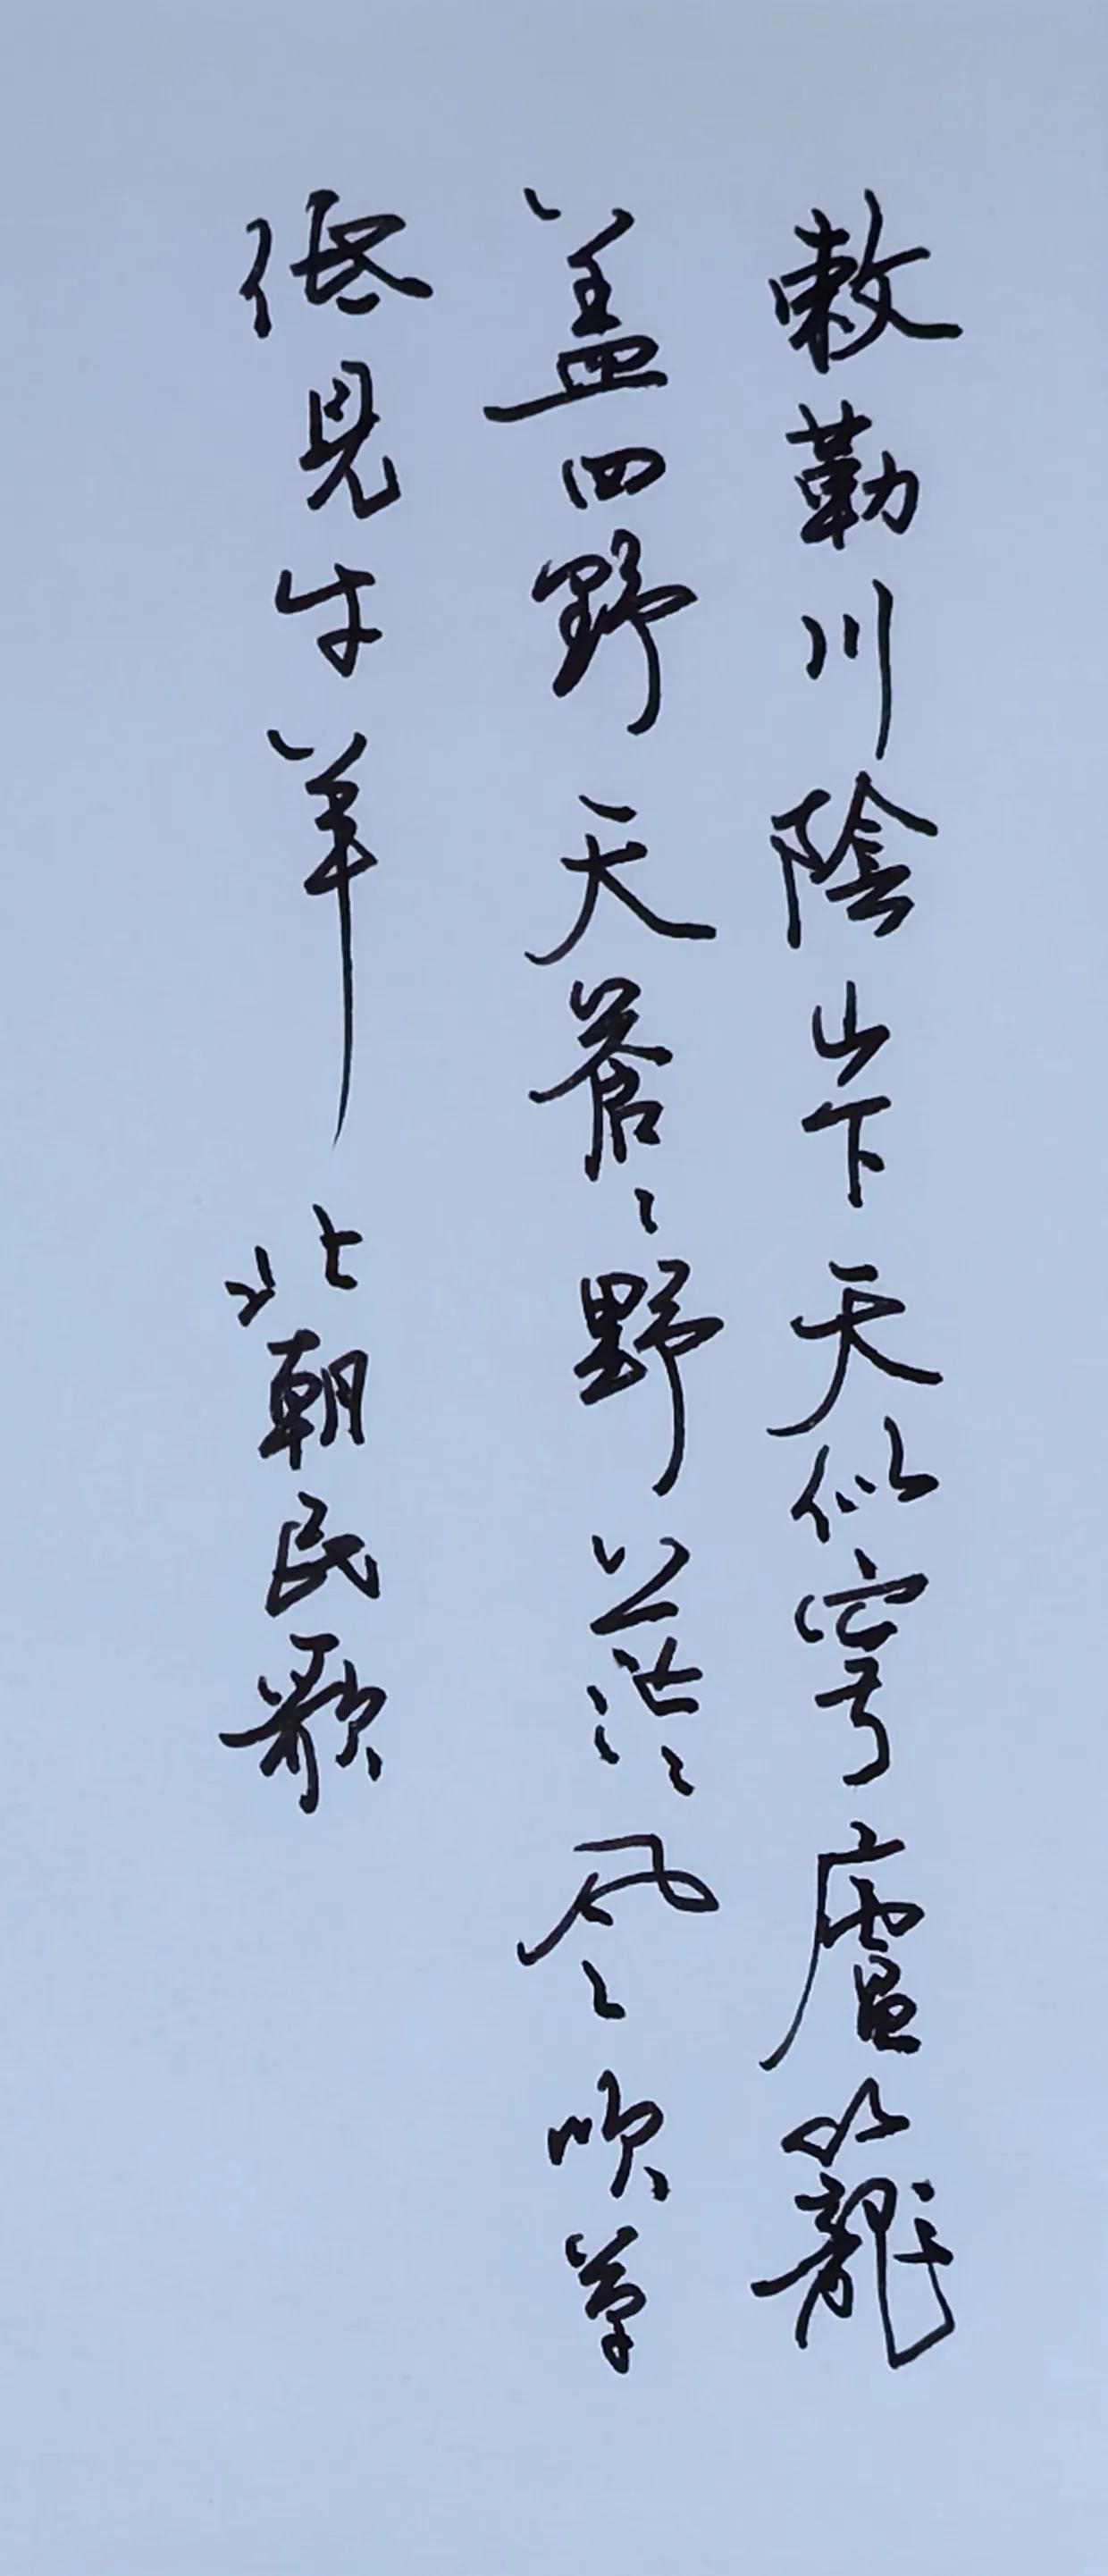 敕勒川陰山下天似穹廬籠
盖四野天蒼〻野茫〻風吹草
低見牛羊 北朝民歌